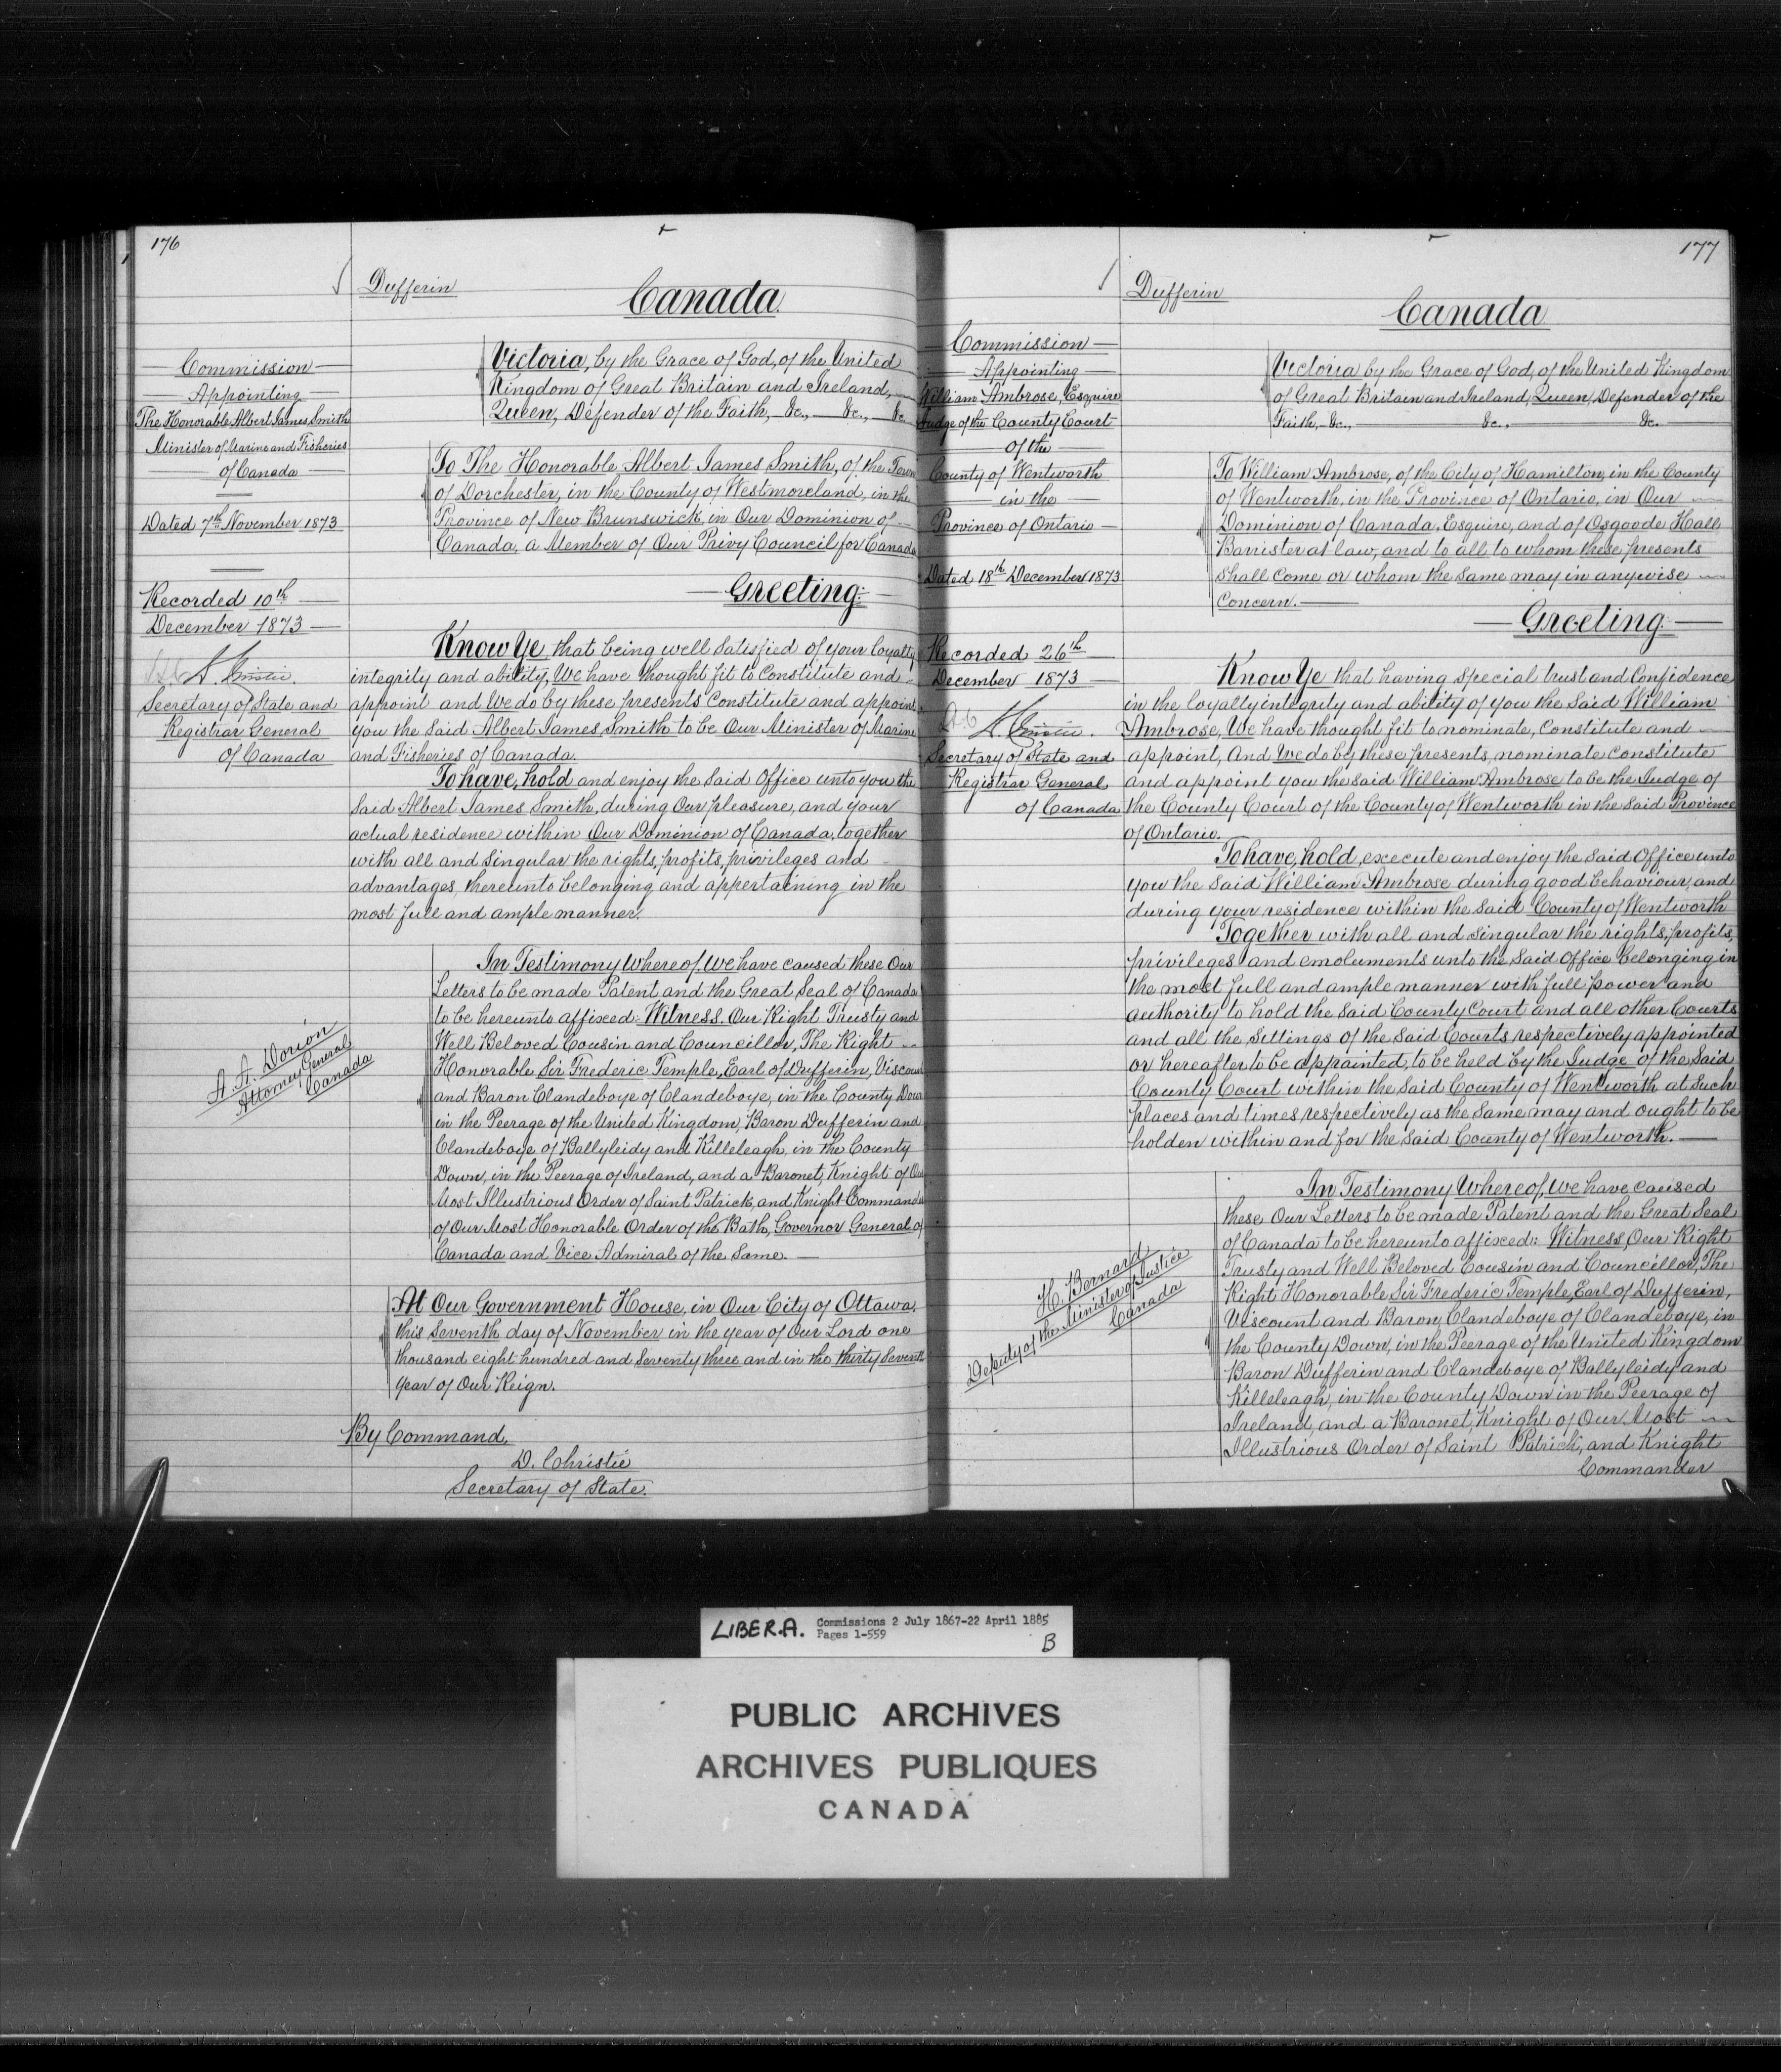 176
Dufferin
Canada
Commission
Appointing
The Honorable Albert James Smith
Minister of Marine and Fisheries
of Canada
Dated 7th November 1873
Recorded 10th
December 1873
Secretary of State and
Registrar General
of Canada
Victoria, by the Grace of God, of the United
Kingdom of Great Britain and Ireland,
Queen, Defender of the Faith, &c., &c., &c.
To The Honorable Albert James Smith, of the Town
of Dorchester, in the County of Westmoreland, in the
Province of New Brunswick, in Our Dominion of
Canada, a Member of Our Privy Council for Canada
Greeting:
Know Ye that being well satisfied of your loyalty
integrity and ability, We have thought fit to constitute and
appoint and We do by these presents constitute and appoint
you the said Albert James Smith to be Our Minister of Marine
and Fisheries of Canada.
To have, hold and enjoy the said Office unto you the
said Albert James Smith, during Our pleasure, and your
actual residence within Our Dominion of Canada, together
with all and singular the rights, profits, privileges and
advantages, thereunto belonging and appertaining in the
most full and ample manner.
In Testimony Whereof, We have caused these Our
Letters to be made Patent and the Great Seal of Canada
to be hereunto affixed: Witness, Our Right Trusty and
Well Beloved Cousin and Councillor, The Right
Honorable Sir Frederic Temple, Earl of Dufferin, Viscount
and Baron Clandeboye of Clandeboye, in the County Down
in the Peerage of the United Kingdom, Baron Dufferin and
Clandeboye of Ballyleidy and Killeleagh, in the County
Down, in the Peerage of Ireland, and a Baronet, Knight of Our
Most Illustrious Order of Saint Patrick, and Knight Commander
of Our Most Honorable Order of the Bath, Governor General of
Canada and Vice Admiral of the same.
A. A. Dorion
Attorney General
Canada
At Our Government House, in Our City of Ottawa,
this Seventh day of November in the year of Our Lord one
thousand eight hundred and seventy three and in the thirty seventh
year of Our Reign.
By Command,
D. Christie
Secretary of State.
177
Dufferin
Canada
Commission
Appointing
William Ambrose, Esquire
Judge of the County Court
of the
County of Wentworth
in the
Province of Ontario
Dated 18th December 1873
Recorded 26th
December 1873
Secretary of State and
Registrar General
of Canada
Victoria by the Grace of God, of the United Kingdom
of Great Britain and Ireland, Queen, Defender of the
Faith, &c., &c., &c.
To William Ambrose, of the City of Hamilton, in the County
of Wentworth, in the Province of Ontario, in Our
Dominion of Canada, Esquire, and of Osgoode Hall
Barrister at law, and to all to whom these presents
shall come or whom the same may in anywise
Concern.
Greeting:
Know Ye that having special trust and confidence
in the loyalty integrity and ability of you the said William
Ambrose, We have thought fit to nominate, constitute and
appoint, And We do by these presents, nominate constitute
and appoint you the said William Ambrose to be the Judge of
the County Court of the County of Wentworth in the said Province
of Ontario.
To have, hold, execute and enjoy the said Office unto
you the said William Ambrose during good behaviour, and
during your residence within the said County of Wentworth
Together with all and singular the rights, profits,
privileges and emoluments unto the said Office belonging in
the most full and ample manner with full power and
authority to hold the said County Court and all other Courts
and all the Sittings of the said Courts respectively appointed
or hereafter to be appointed, to be held by the Judge of the said
County Court within the said County of Wentworth at such
places and times, respectively as the same may and ought to be
holden within and for the said County of Wentworth.
In Testimony Whereof, We have caused
these Our Letters to be made Patent and the Great Seal
of Canada to be hereunto affixed: Witness, Our Right
Trusty and Well Beloved Cousin and Councillor, The
Right Honorable Sir Frederic Temple, Earl of Dufferin,
Viscount and Baron Clandeboye of Clandeboye, in
the County Down, in the Peerage of the United Kingdom
Baron Dufferin and Clandeboye of Ballyleidy and
Killeleagh, in the County Down in the Peerage of
Ireland, and a Baronet, Knight of Our Most
Illustrious Order of Saint Patrick, and Knight
Commander
H. Bernard
Deputy of the Minister of Justice
Canada
LIBER.A. Commissions 2 July 1867-22 April 1885
Pages 1-559
B
PUBLIC ARCHIVES
ARCHIVES PUBLIQUES
CANADA